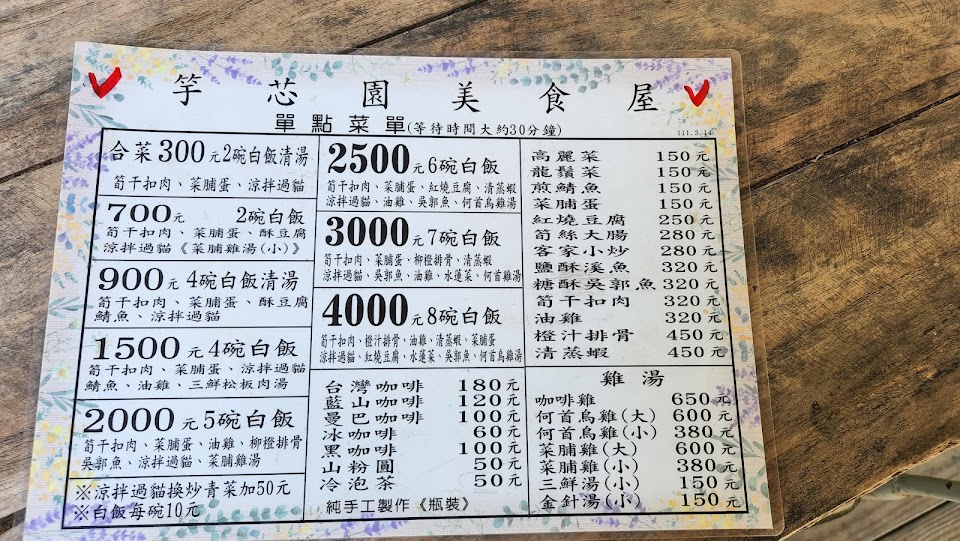 竽芯園美食屋
單點菜單(等待時間大約30分鐘)
111.3.14
合菜300元2碗白飯清湯
筍干扣肉、菜脯蛋、涼拌過貓
700元 2碗白飯
筍干扣肉、菜脯蛋、酥豆腐
涼拌過貓《菜脯雞湯(小)》
900元 4碗白飯清湯
筍干扣肉、菜脯蛋、酥豆腐
鯖魚、涼拌過貓
1500元 4碗白飯
筍干扣肉、菜脯蛋、涼拌過貓
鯖魚、油雞、三鮮松板肉湯
2000元 5碗白飯
筍干扣肉、菜脯蛋、油雞、柳橙排骨
吳郭魚、涼拌過貓、菜脯雞湯
※涼拌過貓換炒青菜加50元
※白飯每碗10元
2500元 6碗白飯
筍干扣肉、菜脯蛋、紅燒豆腐、清蒸蝦
涼拌過貓、油雞、吳郭魚、何首烏雞湯
3000元 7碗白飯
筍干扣肉、菜脯蛋、柳橙排骨、清蒸蝦
涼拌過貓、吳郭魚、油雞、水蓮菜、何首烏雞湯
4000元 8碗白飯
筍干扣肉、橙汁排骨、油雞、清蒸蝦、菜脯蛋
涼拌過貓、紅燒豆腐、水蓮菜、吳郭魚、何首烏雞湯
台灣咖啡 180元
藍山咖啡 120元
曼巴咖啡 100元
冰咖啡 60元
黑咖啡 100元
山粉圓 50元
冷泡茶 50元
純手工製作《瓶裝》
高麗菜 150元
龍鬚菜 150元
煎鯖魚 150元
菜脯蛋 150元
紅燒豆腐 250元
筍絲大腸 280元
客家小炒 280元
鹽酥溪魚 320元
糖酥吳郭魚 320元
筍干扣肉 320元
油雞 320元
橙汁排骨 450元
清蒸蝦 450元
雞湯
咖啡雞 650元
何首烏雞(大) 600元
何首烏雞(小) 380元
菜脯雞(大) 600元
菜脯雞(小) 380元
三鮮湯(小) 150元
金針湯(小) 150元